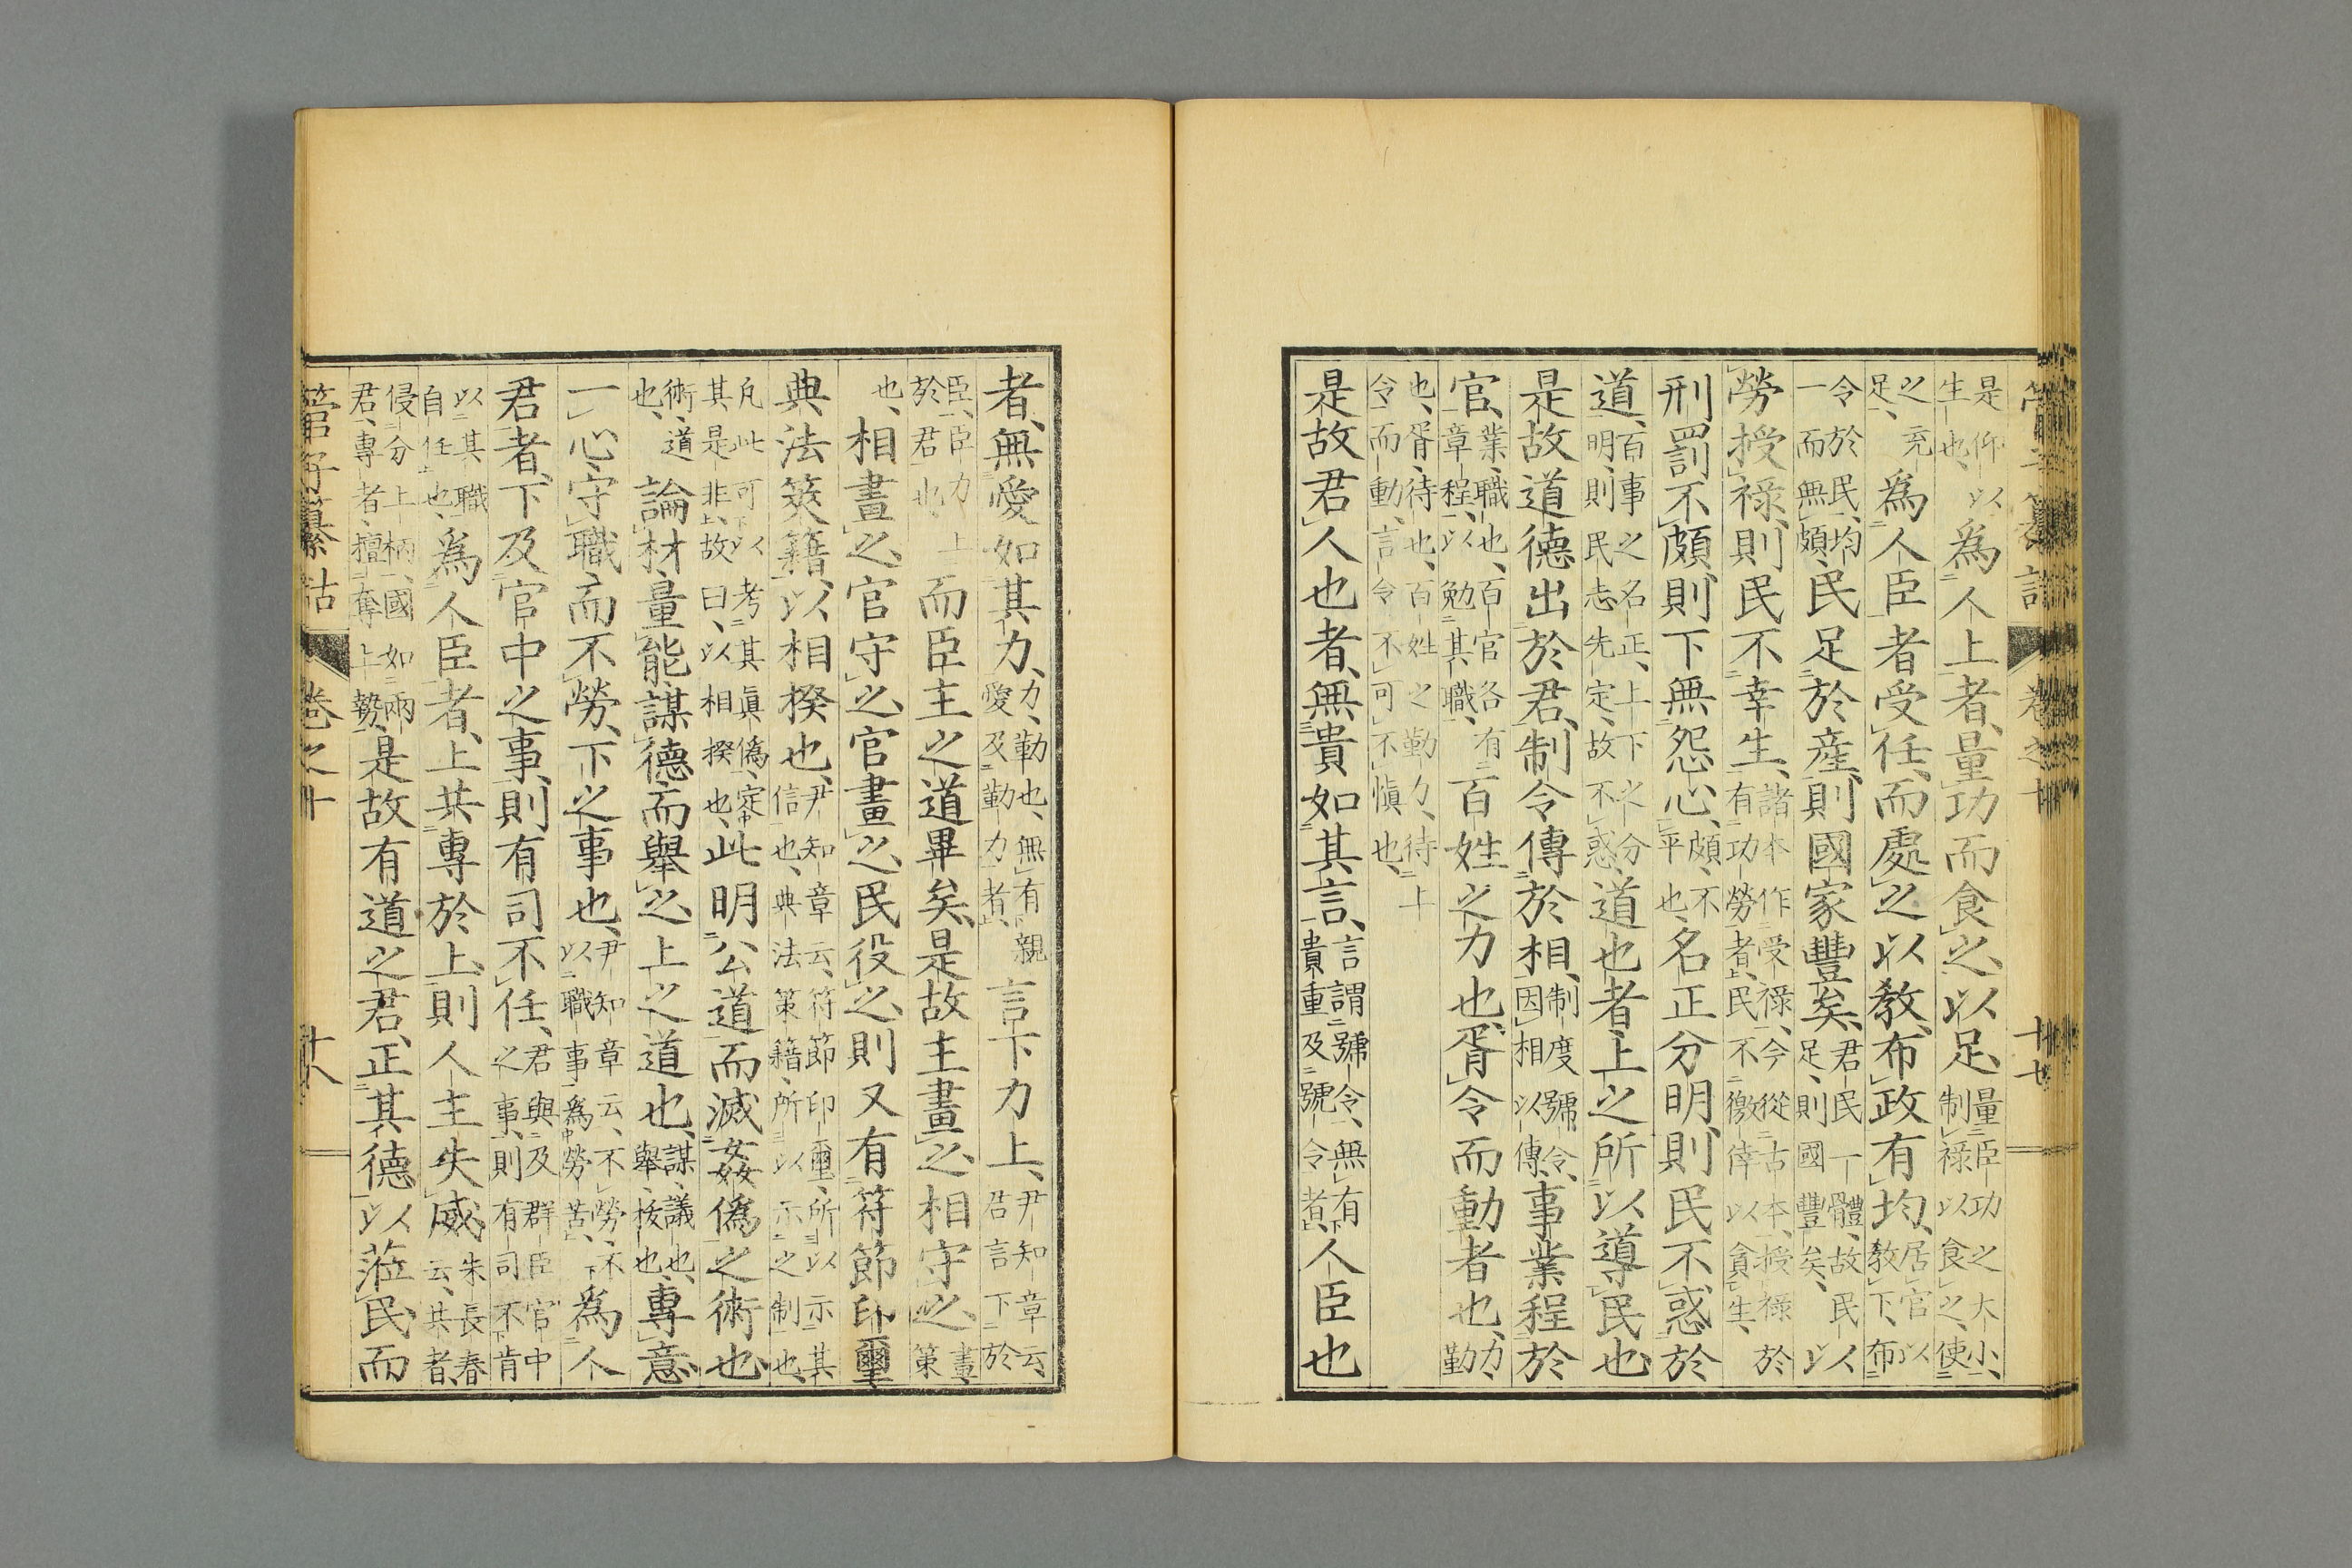 是仰以生也、爲人上者、量功而食之以足、量臣功之大小、制祿以食之、使
之充足、爲人臣者受任而處之以敎、布政有均、居官以敎下、布
令於民、均一而無頗、民足於產、則國家豐矣、君民一體、故民以足、則國豐矣、以
勞授祿、則民不幸生、諸本作受祿、今從古本、授祿於有功勞者、民不徼倖以貪生、
刑罰不頗、則下無怨心、頗、不平也、名正分明、則民不惑於
道、百事之名正、上下之分明、則民志先定、故不惑、道也者、上之所以導民也
是故道德出於君、制令傳於相、制度號令、因相以傳、事業程於
官、業、職也、百官各有章程、以勉其職、百姓之力也、胥令而動者也、力、勤
也、胥、待也、百姓之勤力、待上令而動、言令不可不愼也、
是故君人也者、無貴如其言、言謂號令、無有貴重及號令者、人臣也
管子纂詁 卷之十 十七
者、無愛如其力、力、勤也、無有親愛及勤力者、言下力上、尹知章云、君言下於
臣、臣力上於君也、而臣主之道畢矣、是故主畫之、相守之、畫、策
也、相畫之、官守之、官畫之、民役之、則又有符節印璽
典法筴籍、以相揆也、尹知章云、符節印璽、所以示其信也、典法策籍、所以示之制也、
凡此可以考其眞僞、定其是非、故曰、以相揆也、此明公道而滅姦僞之術也
術、道也、論材量能、謀德而舉之、上之道也、謀、議也、舉、拔也、專意
一心、守職而不勞、下之事也、尹知章云、不勞、不以職事爲勞苦、爲人
君者、下及官中之事、則有司不任、君與及群臣官中之事、則有司不肯
以其職自任也、爲人臣者、上共專於上、則人主失威、朱長春云、共者、
侵分上柄、國如兩君、專者、擅奪上勢、是故有道之君、正其德以蒞民、而
管子纂詁 卷之十 十八